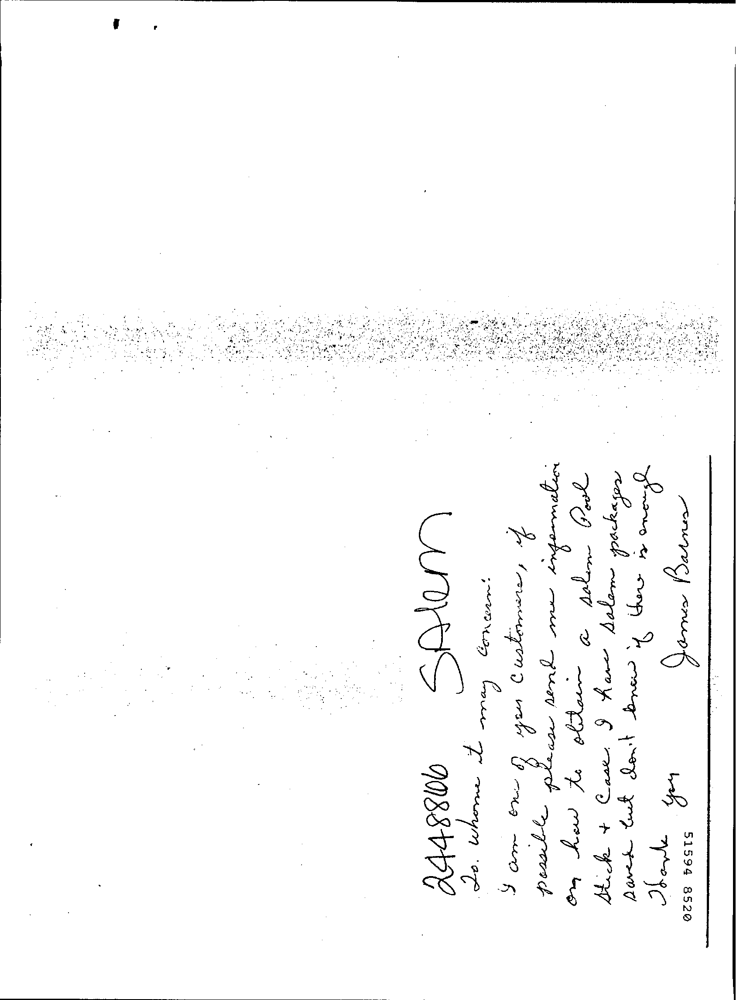 24488106 SAlem
To. Whome it may Concern:
I am one of your Customers, if
possible please send me information
on how to obtain a salem Pool
Stick + Case. I have Salem packages
saved but don't know if there is enough
Thank you James Barnes
51594 8520